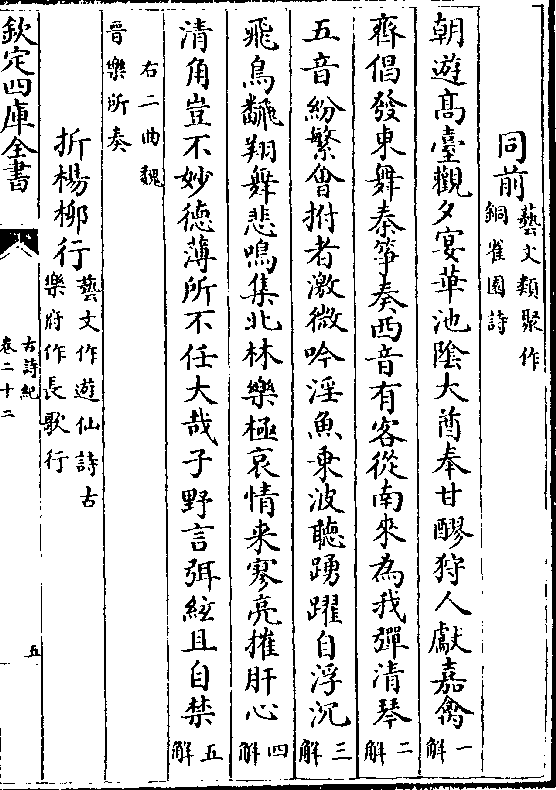 同前藝文類聚作
銅雀園詩
朝遊髙臺觀夕宴華池隂大酋奉甘醪狩人獻嘉禽一解
齊倡發東舞秦筝奏西音有客從南來為我彈清琴二解
五音紛繁會拊者激微吟淫魚乗波聽踴躍自浮沉三解
飛鳥飜翔舞悲鳴集北林樂極哀情来寥亮摧肝心四解
清角豈不妙德薄所不任大哉子野言弭絃且自禁五解
右二曲魏
晉樂所奏
折楊柳行藝文作遊仙詩古
樂府作長歌行
欽定四庫全書
古詩紀
卷二十二
五